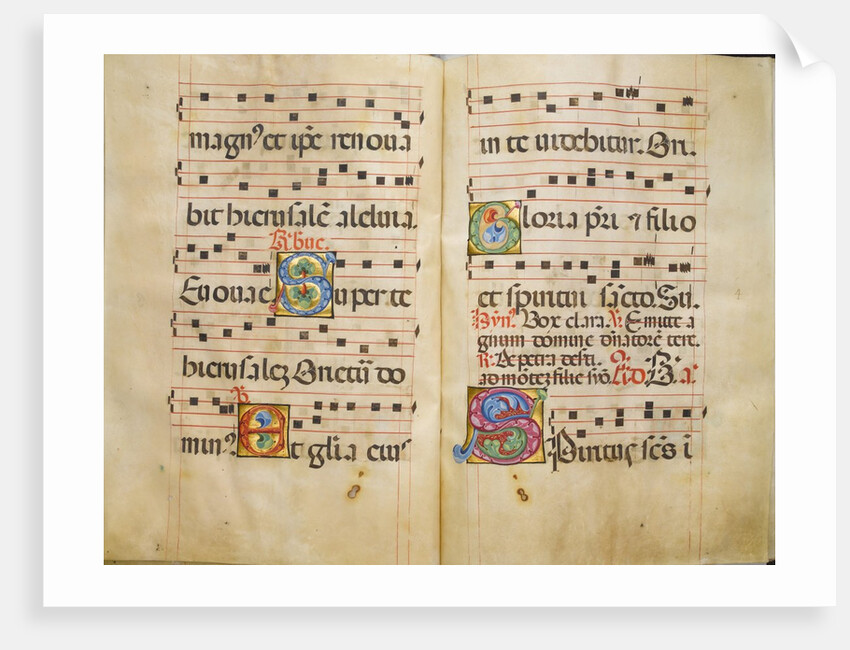 magn⁹ et ip̄e renova
bit hierusalē alleluia.
R. buc.
Euouae Super te
hierusalez Orietur do
V.
min⁹ Et glīa eius
in te videbitur. Ori.
Gloria p̄ri & filio
et spiritui sācto. Su.
Hỹn⁹. Vox clara. V. Emitte a
gnum domine dīatorē terre.
R. De petra deserti.
ad mōtez filie syō. Ad B. a.
Spiritus scs̄ i